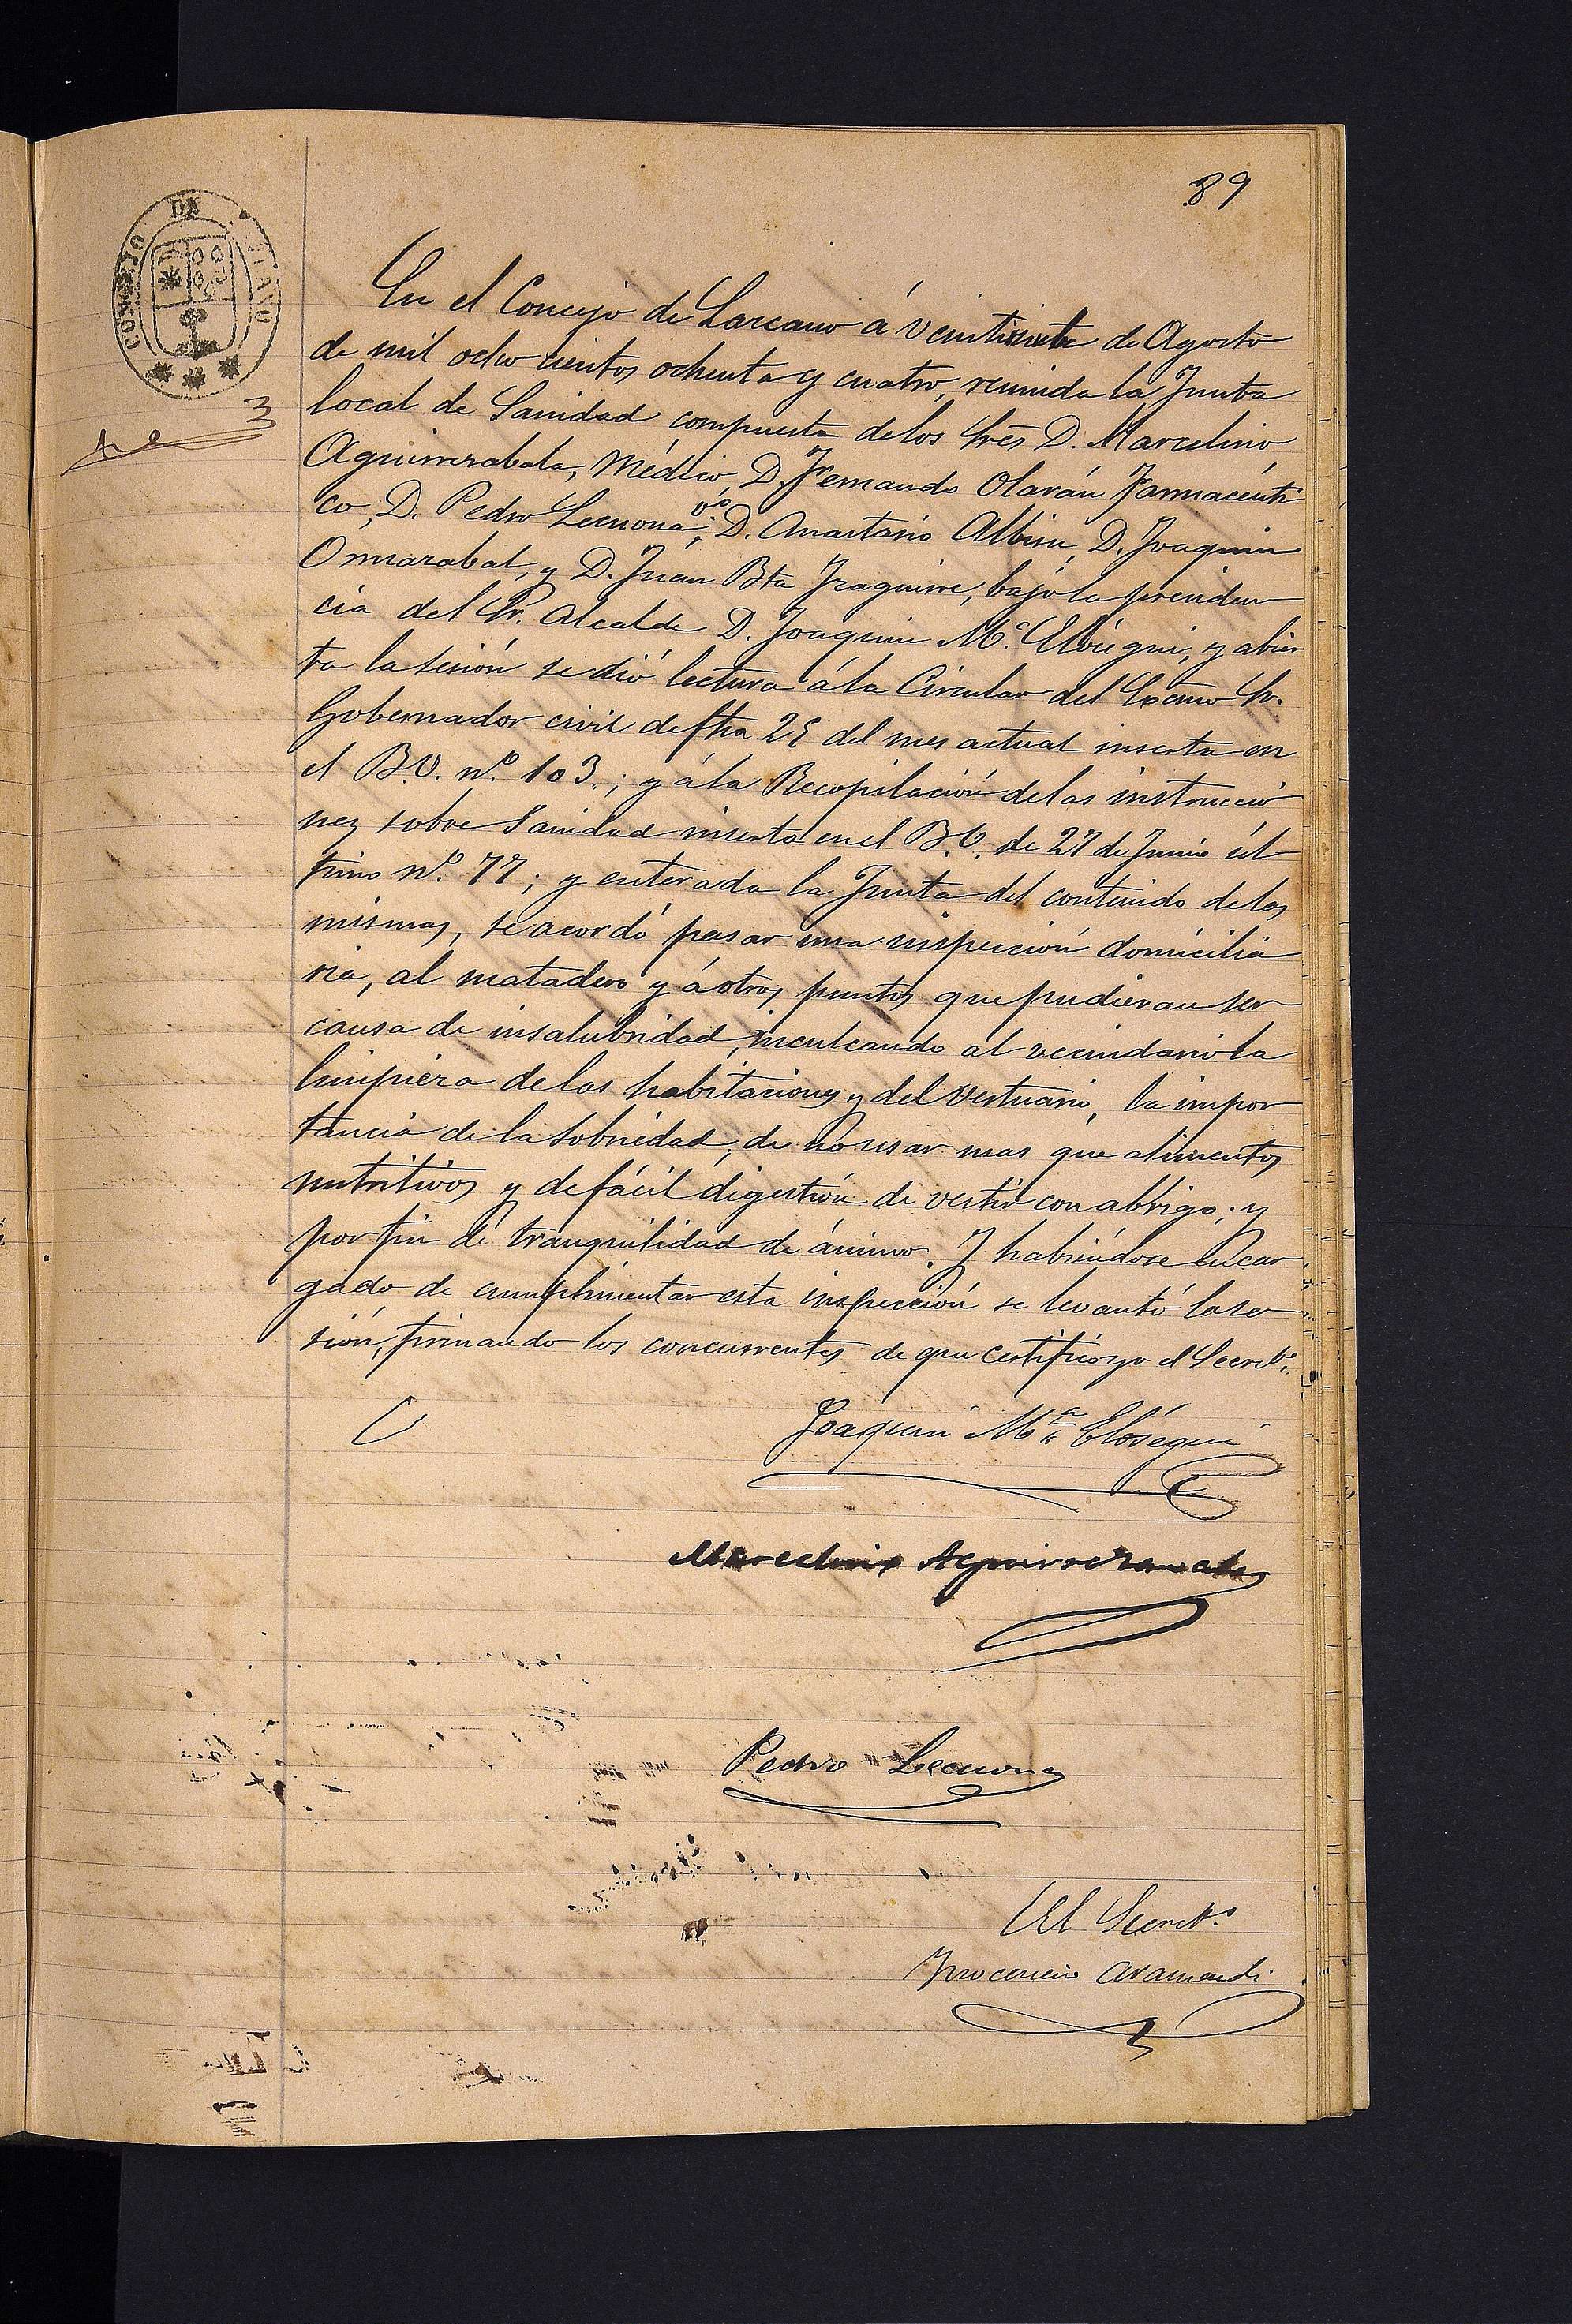 89
CONCEJO DE
En el Concejo de Lazcano á veintisiete de Agosto
de mil ocho cientos ochenta y cuatro, reunida la Junta
local de Sanidad compuesta de los Sres D. Marcelino
Aguirrezabala, Médico, D. Fernando Olarán Farmacéuti
co, D. Pedro Lecuona, D. Anastasio Albisu, D. Joaquin
Ormazabal, y D. Juan Bta Iraguirre, bajo la presiden
cia del Sr. Alcalde D. Joaquin Mª Elósegui, y abier
ta la sesión se dió lectura á la Circular del Excmo Sr.
Gobernador civil de fha 25 del mes actual inserta en
el B.O. nº 103.; y á la Recopilación de las instruccio
nes sobre Sanidad inserta en el B.O. de 27 de Junio úl
timo nº 77; y enterada la Junta del contenido de las
mismas, se acordó pasar una inspección domicilia
ria, al matadero y á otros puntos que pudieran ser
causa de insalubridad, inculcando al vecindario la
limpieza de las habitaciones y del vestuario, la impor
tancia de la sobriedad, de no usar mas que alimentos
nutritivos y de fácil digestión de vestir con abrigo; y
por fin de tranquilidad de ánimo. Y habiéndose encar
gado de cumplimentar esta inspección se levantó la se
sión, firmando los concurrentes de que certifico yo el Secretº.
Joaquin Mª Elósegui
Marcelino Aguirrezabala
Pedro Lecuona
El Secretº
Inocencio Aramendi